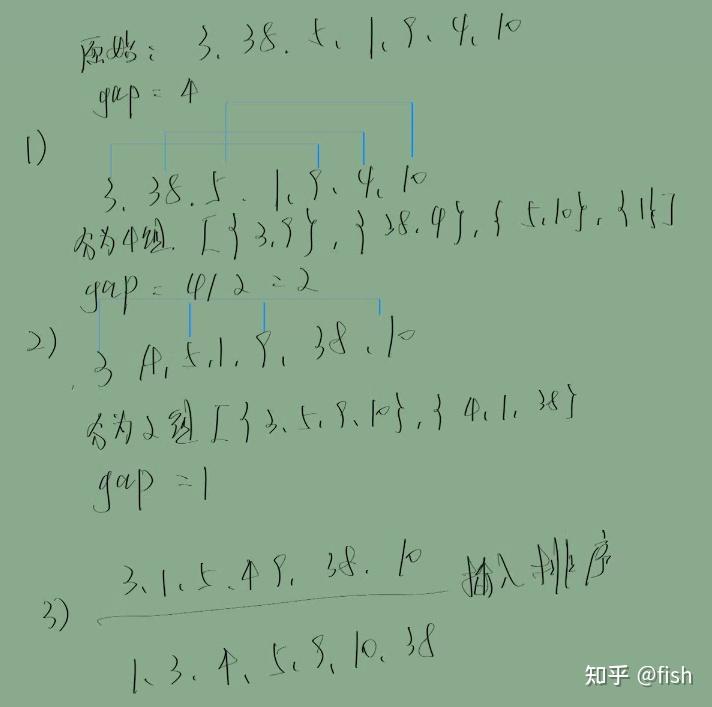 原始: 3. 38. 5、1、9、4、10
gap = 4
1)
3. 38. 5. 1、9. 4、10
分为4组. [{3、9},{38.4},{5.10},{1}]
gap = 4/2 = 2
2)
3 4、5、1、9、38.10
分为2组[{3、5、9、10},{4、1、38}
gap = 1
3)
3、1、5、4 9、38. 10 插入排序
1、3、4、5、9、10、38
知乎 @fish